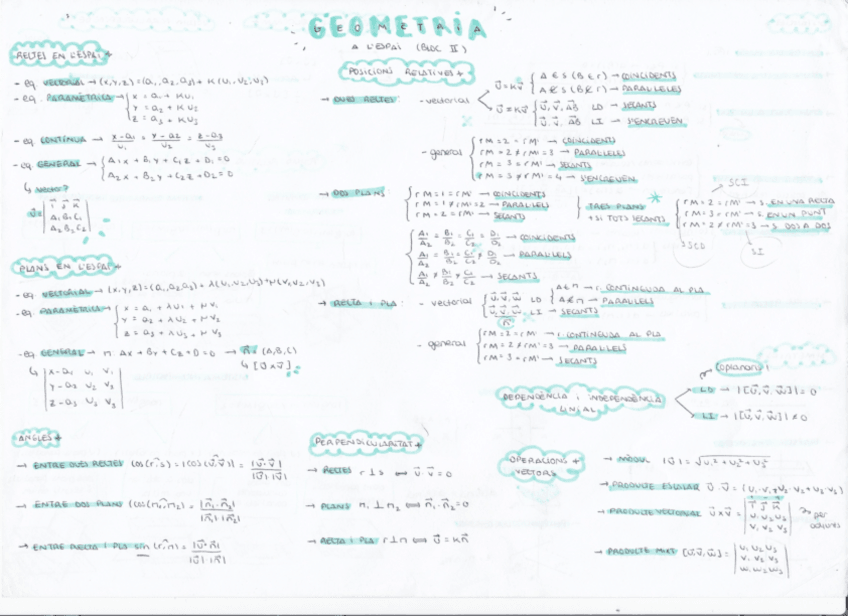 GEOMETRIA
A L'ESPAI (BLOC II)
RECTES EN L'ESPAI
- eq. VECTORIAL → (x,y,z) = (a₁, a₂, a₃) + K(u₁, u₂, u₃)
- eq. PARAMÈTRICA → { x = a₁ + Ku₁
y = a₂ + Ku₂
z = a₃ + Ku₃
- eq. CONTÍNUA → x-a₁/v₁ = y-a₂/v₂ = z-a₃/v₃
- eq. GENERAL → { A₁x + B₁y + C₁z + D₁ = 0
A₂x + B₂y + C₂z + D₂ = 0
↳ vector?
v⃗ = | i⃗ j⃗ k⃗ |
| A₁ B₁ C₁ |
| A₂ B₂ C₂ |
PLANS EN L'ESPAI
- eq. VECTORIAL → (x,y,z) = (a₁,a₂,a₃) + λ(u₁,u₂,u₃) + μ(v₁,v₂,v₃)
- eq. PARAMÈTRICA → { x = a₁ + λu₁ + μv₁
y = a₂ + λu₂ + μv₂
z = a₃ + λu₃ + μv₃
- eq. GENERAL → π: Ax + By + Cz + D = 0 → n⃗ = (A,B,C)
↳ [u⃗ x v⃗]
↳ | x-a₁ u₁ v₁ |
| y-a₂ u₂ v₂ |
| z-a₃ u₃ v₃ |
ANGLES
→ ENTRE DUES RECTES cos(r,s) = |cos(u⃗,v⃗)| = |u⃗·v⃗| / |u⃗|·|v⃗|
→ ENTRE DOS PLANS (cos(π₁,π₂) = |n⃗₁·n⃗₂| / |n⃗₁|·|n⃗₂|
→ ENTRE RECTA I PLA sin(r,π) = |u⃗·n⃗| / |u⃗|·|n⃗|
POSICIONS RELATIVES
→ DUES RECTES: - vectorials
u⃗ = Kv⃗ { A ∈ s (B ∈ r) → COINCIDENTS
A ∉ s (B ∉ r) → PARAL·LELES
u⃗ ≠ Kv⃗ { u⃗, v⃗, AB⃗ LD → SECANTS
u⃗, v⃗, AB⃗ LI → S'ENCREUEN
- generals { rM = 2 = rM' → COINCIDENTS
rM = 2 ≠ rM' = 3 → PARAL·LELES
rM = 3 = rM' → SECANTS
rM = 3 ≠ rM' = 4 → S'ENCREUEN
→ DOS PLANS { rM = 1 = rM' → COINCIDENTS
rM = 1 ≠ rM' = 2 → PARAL·LELS
rM = 2 = rM' → SECANTS
{ A₁/A₂ = B₁/B₂ = C₁/C₂ = D₁/D₂ → COINCIDENTS
A₁/A₂ = B₁/B₂ = C₁/C₂ ≠ D₁/D₂ → PARAL·LELS
A₁/A₂ ≠ B₁/B₂ ≠ C₁/C₂ → SECANTS
TRES PLANS
+ SI TOTS SECANTS
SCI
{ rM = 2 = rM' → S. EN UNA RECTA
rM = 3 = rM' → S. EN UN PUNT
rM = 2 ≠ rM' = 3 → S. DOS A DOS
SCD
SI
→ RECTA I PLA: - vectorial { u⃗, v⃗, w⃗ LD { A ∈ π → r. CONTINGUDA AL PLA
A ∉ π → PARAL·LELS
u⃗, v⃗, w⃗ LI → SECANTS
n⃗
- generals { rM = 2 = rM' → r. CONTINGUDA AL PLA
rM = 2 ≠ rM' = 3 → PARAL·LELS
rM = 3 = rM' → SECANTS
DEPENDÈNCIA I INDEPENDÈNCIA
LINIAL
Coplanaris!
LD → |[u⃗, v⃗, w⃗]| = 0
LI → |[u⃗, v⃗, w⃗]| ≠ 0
PERPENDICULARITAT
→ RECTES r ⊥ s ⟺ u⃗·v⃗ = 0
→ PLANS π₁ ⊥ π₂ ⟺ n⃗₁·n⃗₂ = 0
→ RECTA I PLA r ⊥ π ⟺ u⃗ = Kn⃗
OPERACIONS
VECTORS
→ MÒDUL |u⃗| = √u₁² + u₂² + u₃²
→ PRODUCTE ESCALAR u⃗·v⃗ = (u₁·v₁ + u₂·v₂ + u₃·v₃)
→ PRODUCTE VECTORIAL u⃗ x v⃗ = | i⃗ j⃗ k⃗ |
| u₁ u₂ u₃ |
| v₁ v₂ v₃ |
per
adjunts
→ PRODUCTE MIXT [u⃗, v⃗, w⃗] = | u₁ u₂ u₃ |
| v₁ v₂ v₃ |
| w₁ w₂ w₃ |